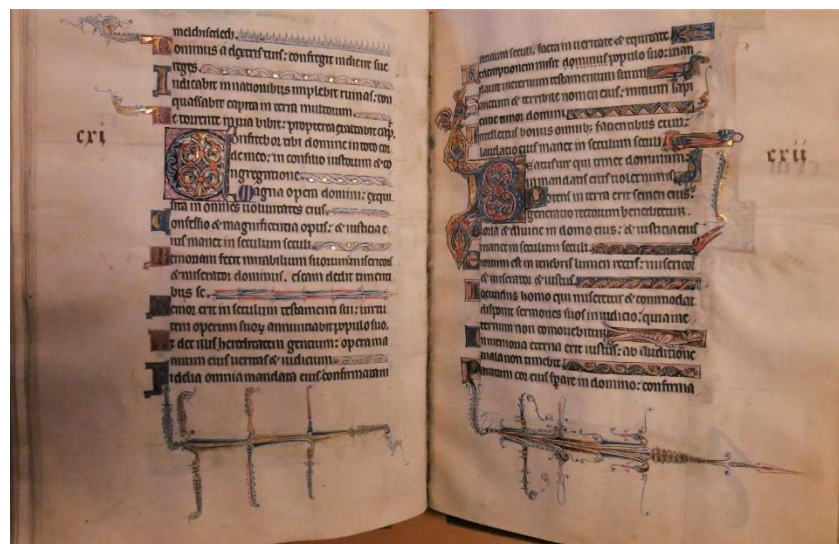 melchisedech.
Dominus a dextris tuis: confregit in die ire sue
reges.
Iudicabit in nationibus implebit ruinas: con
quassabit capita in terra multorum.
De torrente in uia bibit: propterea exaltabit cap.
cxi
Confitebor tibi domine in toto cor
de meo: in consilio iustorum & co
ngregatione.
Magna opera domini: exqui
sita in omnes uoluntates eius.
Confessio & magnificentia opus: & iusticia e
ius manet in seculum seculi.
Memoriam fecit mirabilium suorum misericors
& miserator dominus. escam dedit timenti
bus se.
Memor erit in seculum testamenti sui: uirtu
tem operum suor annuntiabit populo suo.
Et det illis hereditatem gentium: opera ma
nuum eius ueritas & iudicium.
Fidelia omnia mandata eius confirmata in
seculum seculi. facta in ueritate & equitate.
Redemptionem misit dominus populo suo: man
dauit in eternum testamentum suum.
Sanctum & terribile nomen eius: initium sapi
entie timor domini.
Intellectus bonus omnib: facientibus eum:
laudatio eius manet in seculum seculi.
cxii
Beatus uir qui timet dominum:
in mandatis eius uolet nimis.
Potens in terra erit semen eius:
generatio rectorum benedicetur.
Gloria & diuicie in domo eius: & iusticia eius
manet in seculum seculi.
Exortum est in tenebris lumen rectis: misericor
& miserator & iustus.
Iocundus homo qui miseretur & commodat
disponit sermones suos in iudicio: quia in e
ternum non comouebitur.
In memoria eterna erit iustus: ab auditione
mala non timebit.
Paratum cor eius sperare in domino: confirma